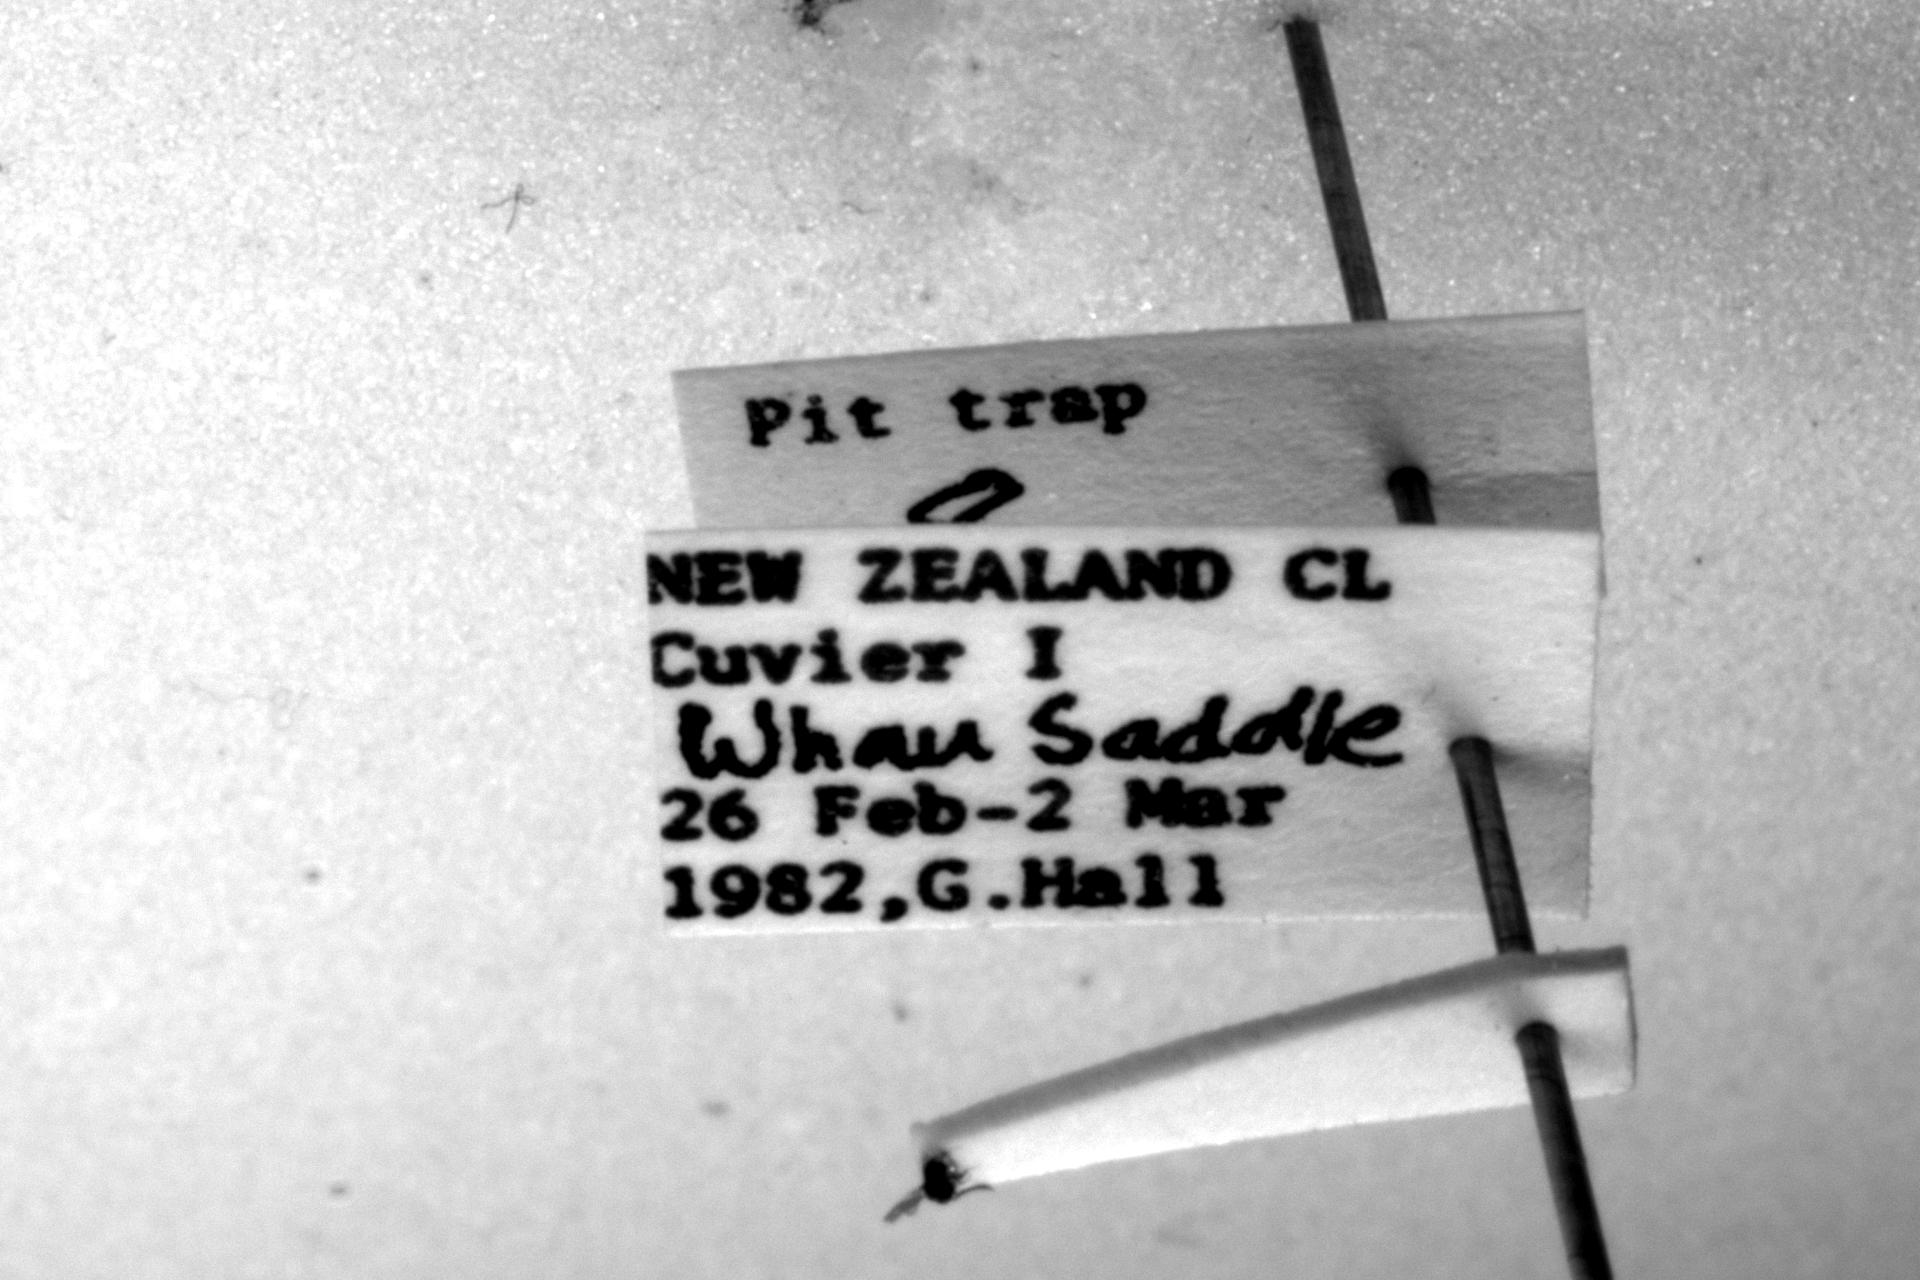 Pit trap
NEW ZEALAND CL
Cuvier I
Whau Saddle
26 Feb-2 Mar
1982,G.Hall